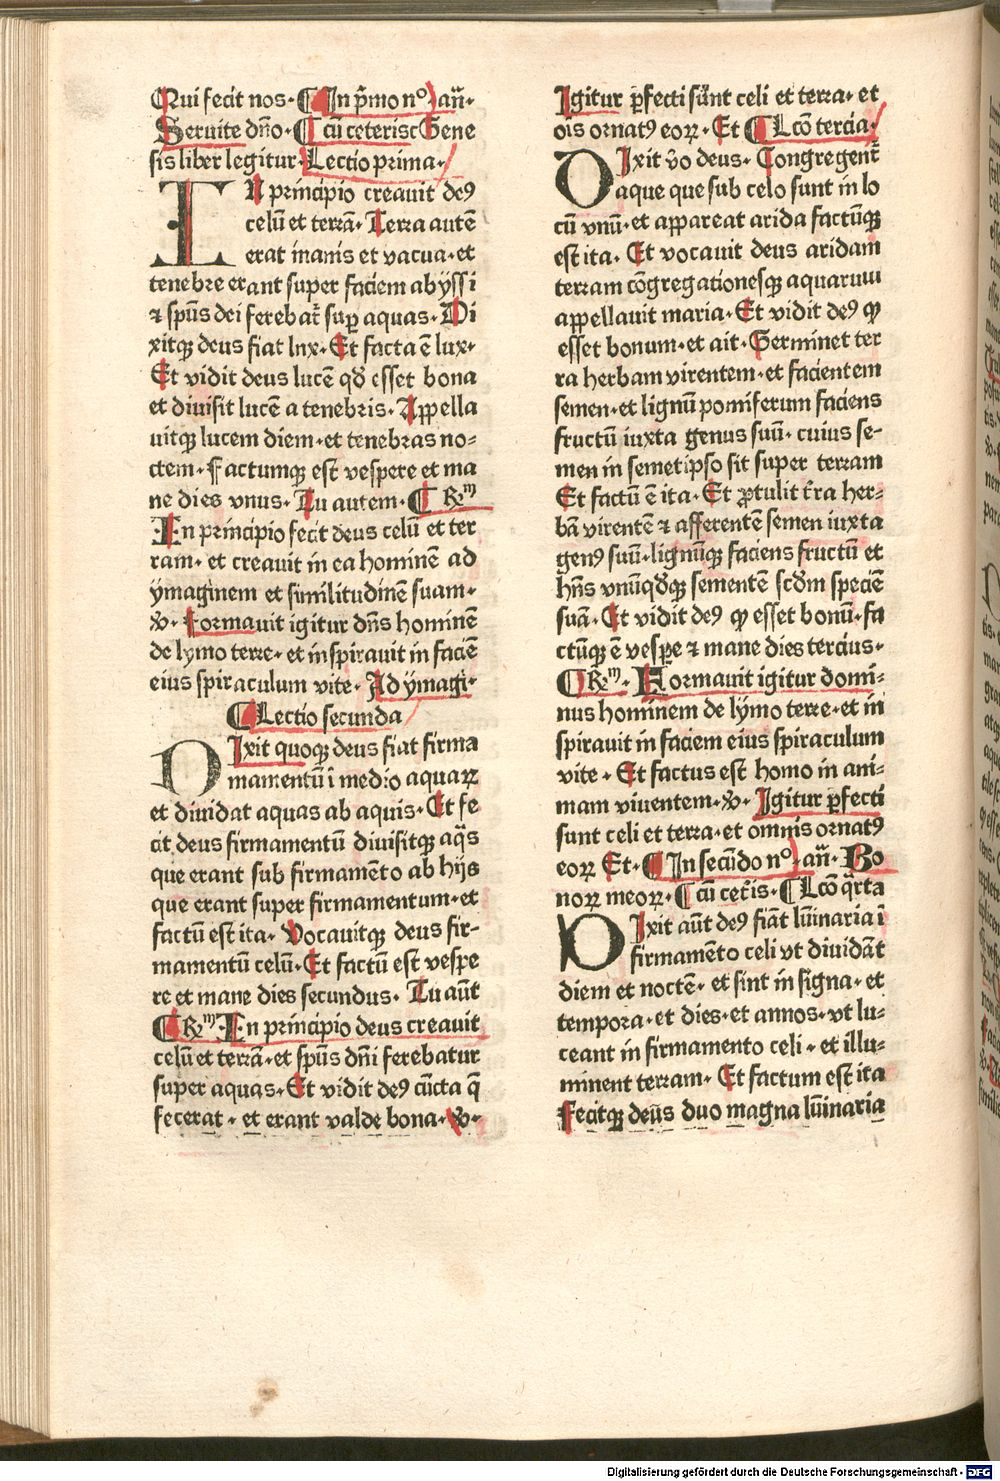 Qui fecit nos. ¶ In p̄mo n°. an̄.
Seruite dn̄o. ¶ cū ceteris Gene
sis liber legitur. Lectio prima.
IN principio creauit deꝰ
celū et terrā. Terra autē
erat inanis et vacua. et
tenebre erant super faciem abyssi
⁊ spūs dei ferebat᷑ suꝑ aquas. Di
xitqꝫ deus fiat lnx. Et facta ē lux.
Et vidit deus lucē qď esset bona
et diuisit lucē a tenebris. Appella
uitqꝫ lucem diem. et tenebras no⸗
ctem. Factumqꝫ est vespere et ma
ne dies vnus. Tu autem. ¶ R̷m
In principio fecit deus celū et ter
ram. et creauit in ea hominē ad
ymaginem et similitudinē suam.
℣. Formauit igitur dn̄s hominē
de lymo terre. et inspirauit in faciē
eius spiraculum vite. Ad ymagi.
¶ Lectio secunda
DIxit quoqꝫ deus fiat firma
mamentū ī medio aquaꝝ
et diuidat aquas ab aquis. Et fe
cit deus firmamentū diuisitqꝫ aq̄s
que erant sub firmamēto ab hijs
que erant super firmamentum. et
factū est ita. Vocauitqꝫ deus fir-
mamentū celū. Et factū est vespe
re et mane dies secundus. Tu aūt
¶ R̷m In principio deus creauit
celū et terrā. et spūs dn̄i ferebatur
super aquas. Et vidit deꝰ cūcta q̄
fecerat. et erant valde bona. ℣.
Igitur ꝑfecti sūnt celi et terra. et
oīs ornatꝰ eoꝝ. Et ¶ Lcō tercia.
DIxit v̄o deus. Congregent᷑
aque que sub celo sunt in lo
cū vnū. et appareat arida factūqꝫ
est ita. Et vocauit deus aridam
terram cōgregationesqꝫ aquaruu
appellauit maria. Et vidit deꝰ ꝙ
esset bonum. et ait. Germinet ter
ra herbam virentem. et facientem
semen. et lignū pomiferum faciens
fructū iuxta genus suū. cuius se-
men in semetipso sit super terram
Et factū ē ita. Et ꝓtulit t̄ra her⸗
bā virentē ⁊ afferentē semen iuxta
genꝰ suū. lignūqꝫ faciens fructū et
hn̄s vnūqďqꝫ sementē scďm speciē
suā. Et vidit deꝰ ꝙ esset bonū. fa
ctūqꝫ ē vesꝑe ⁊ mane dies tercius.
¶ R̷m. Formauit igitur domi⸗
nus hominem de lymo terre. et in
spirauit in faciem eius spiraculum
vite. Et factus est homo in ani⸗
mam viuentem. ℣. Igitur ꝑfecti
sunt celi et terra. et omnis ornatꝰ
eoꝝ Et. ¶ In secūdo n°. an̄. Bo
noꝝ meoꝝ. ¶ cū cet̄is. ¶ Lcō q̄rta
DIxit aūt deꝰ fiāt lūinaria ī
firmamēto celi vt diuidāt
diem et noctē. et sint in signa. et
tempora. et dies. et annos. vt lu⸗
ceant in firmamento celi. et illu⸗
minent terram. Et factum est ita
Fecitqꝫ deus duo magna lūinaria
Digitalisierung gefördert durch die Deutsche Forschungsgemeinschaft - DFG